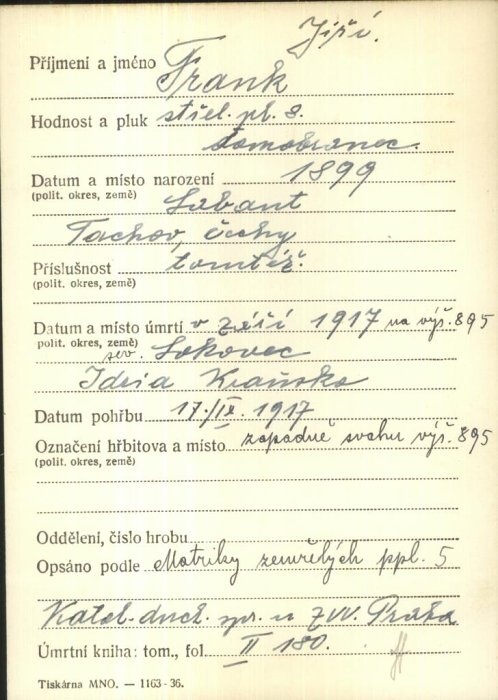 Jiří.
Příjmení a jméno Frank
Hodnost a pluk střel. pl. 8.
domobranec.
Datum a místo narození 1899
(polit. okres, země) Labant
Tachov, Čechy
Příslušnost tomtéž.
(polit. okres, země)
Datum a místo úmrtí v září 1917 na výš. 895
polit. okres, země)
sev. Lokovec
Idria Kraňsko
Datum pohřbu 17./IX. 1917
Označení hřbitova a místo západně svahu výš. 895
(polit. okres, země)
Oddělení, číslo hrobu
Opsáno podle Matriky zemřelých ppl. 5
Katol. duch. spr. u ZVV. Praha
Úmrtní kniha: tom., fol. II 180.
Tiskárna MNO. — 1163-36.